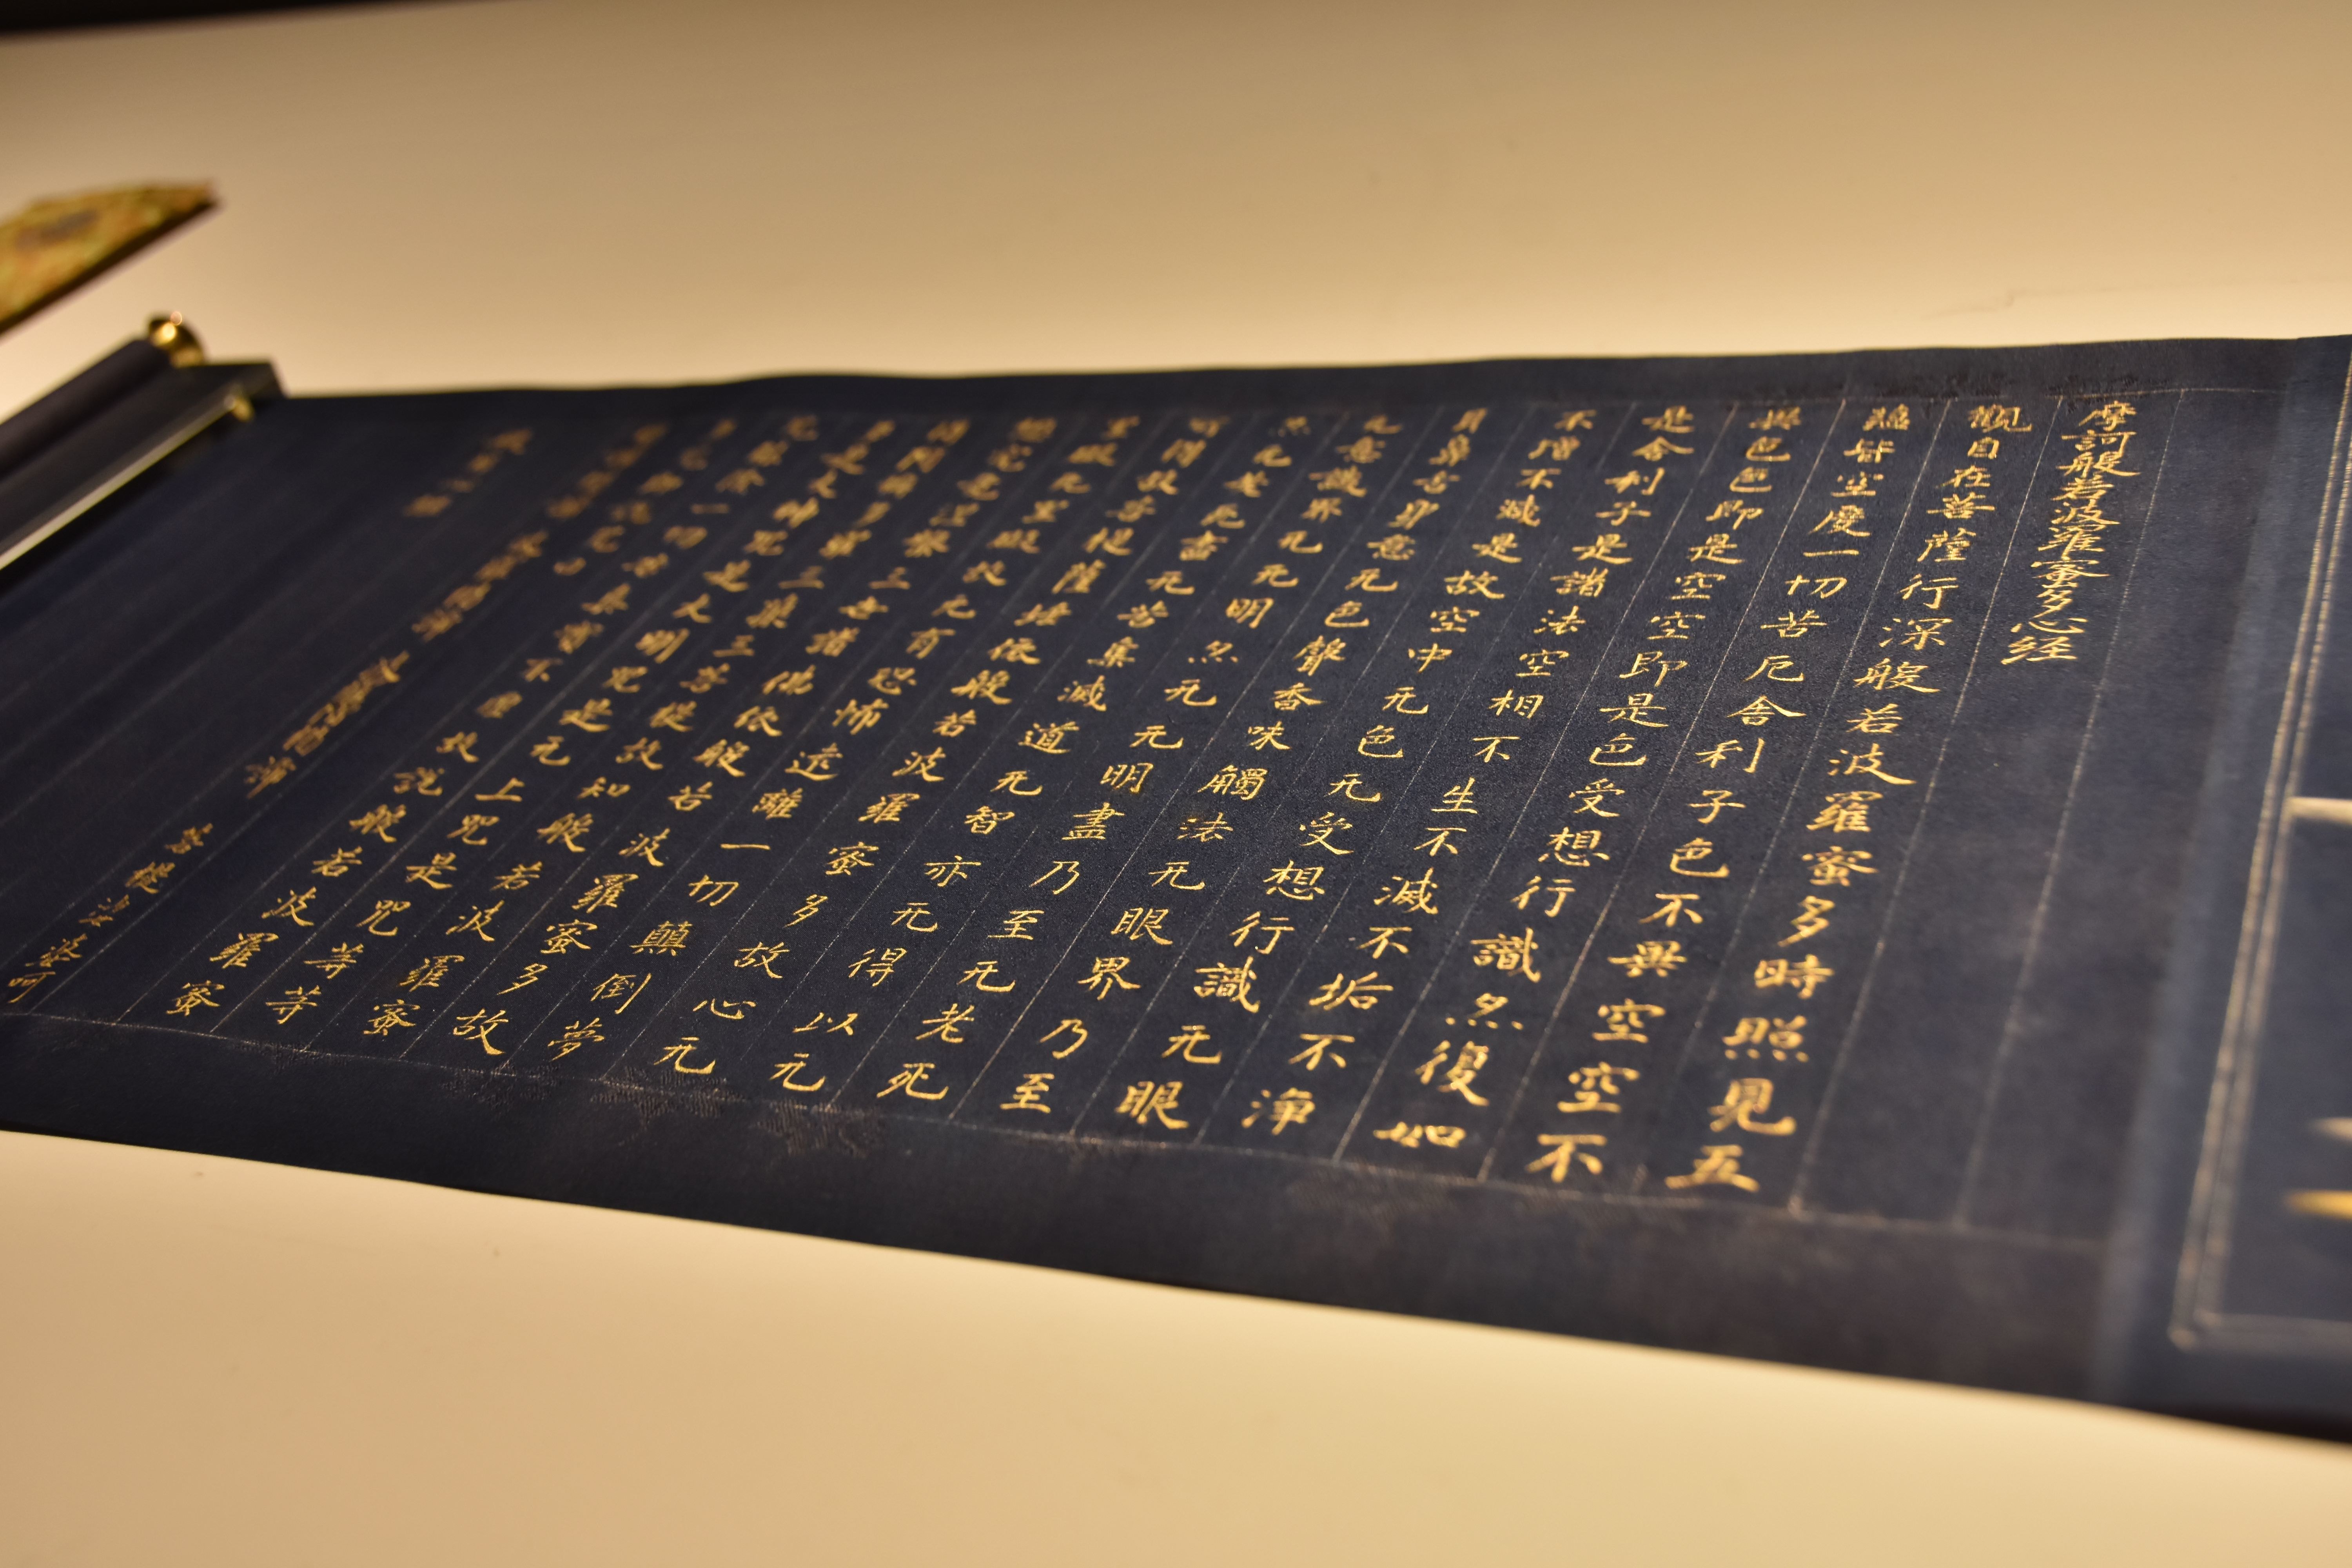 摩訶般若波羅蜜多心経
觀自在菩薩行深般若波羅蜜多時照見五
蘊皆空度一切苦厄舍利子色不異空空不
異色色即是空空即是色受想行識亦復如
是舍利子是諸法空相不生不滅不垢不淨
不增不減是故空中无色无受想行識无眼
耳鼻舌身意无色聲香味觸法无眼界乃至
无意識界无无明亦无无明盡乃至无老死
亦无老死盡无苦集滅道无智亦无得以无
所得故菩提薩埵依般若波羅蜜多故心无
罣礙无罣礙故无有恐怖遠離一切顛倒夢
想究竟涅槃三世諸佛依般若波羅蜜多故
得阿耨多羅三藐三菩提故知般若波羅蜜
多是大神咒是大明咒是无上咒是咒等等
无能除一切苦真實不虛故說般若波羅蜜
多咒即說咒曰
菩提